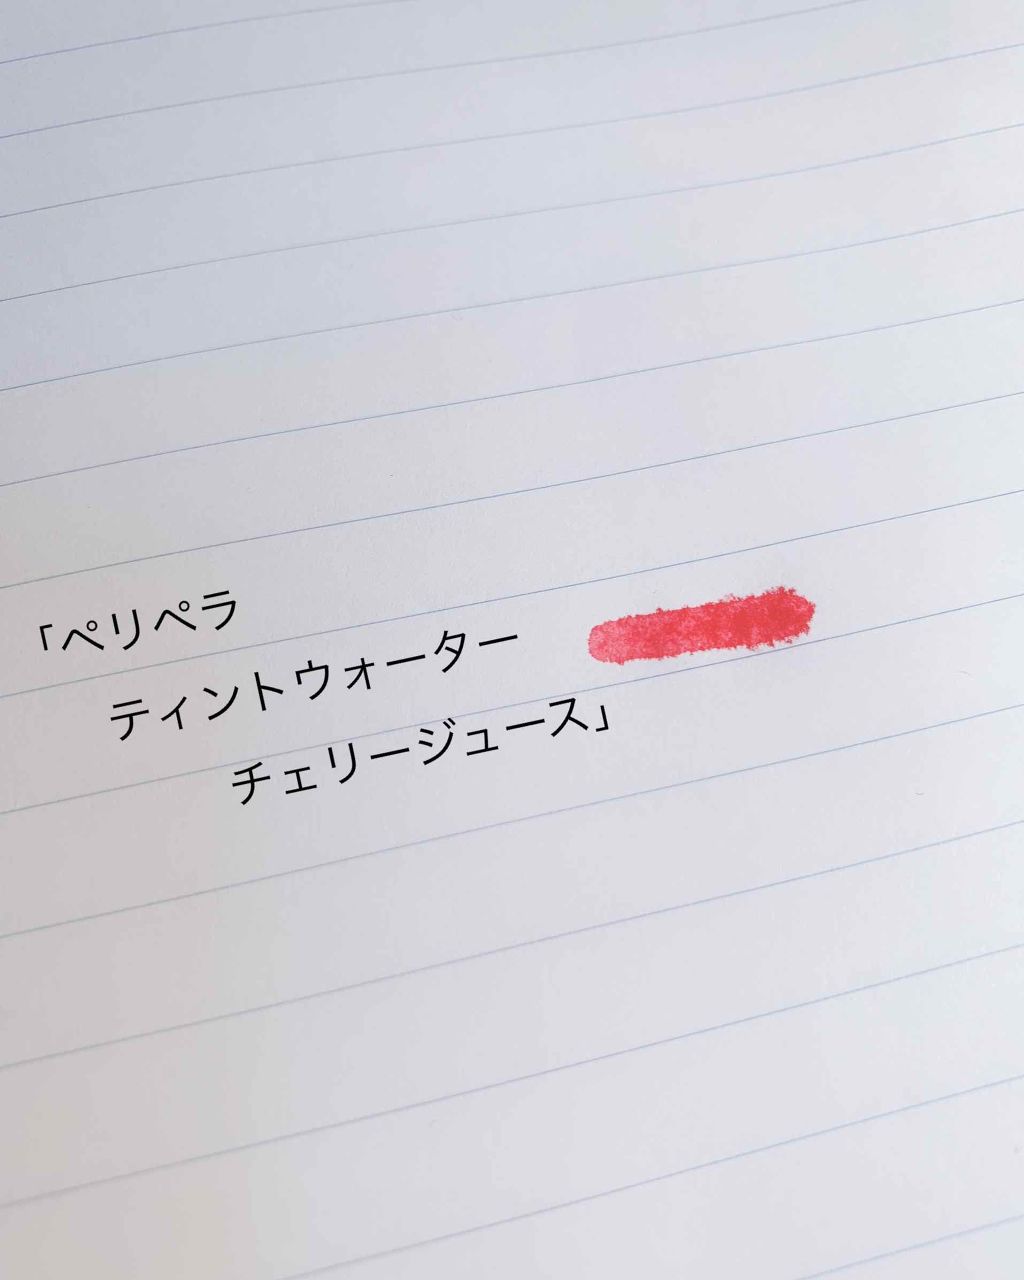 「ペリペラ
ティントウォーター
チェリージュース」